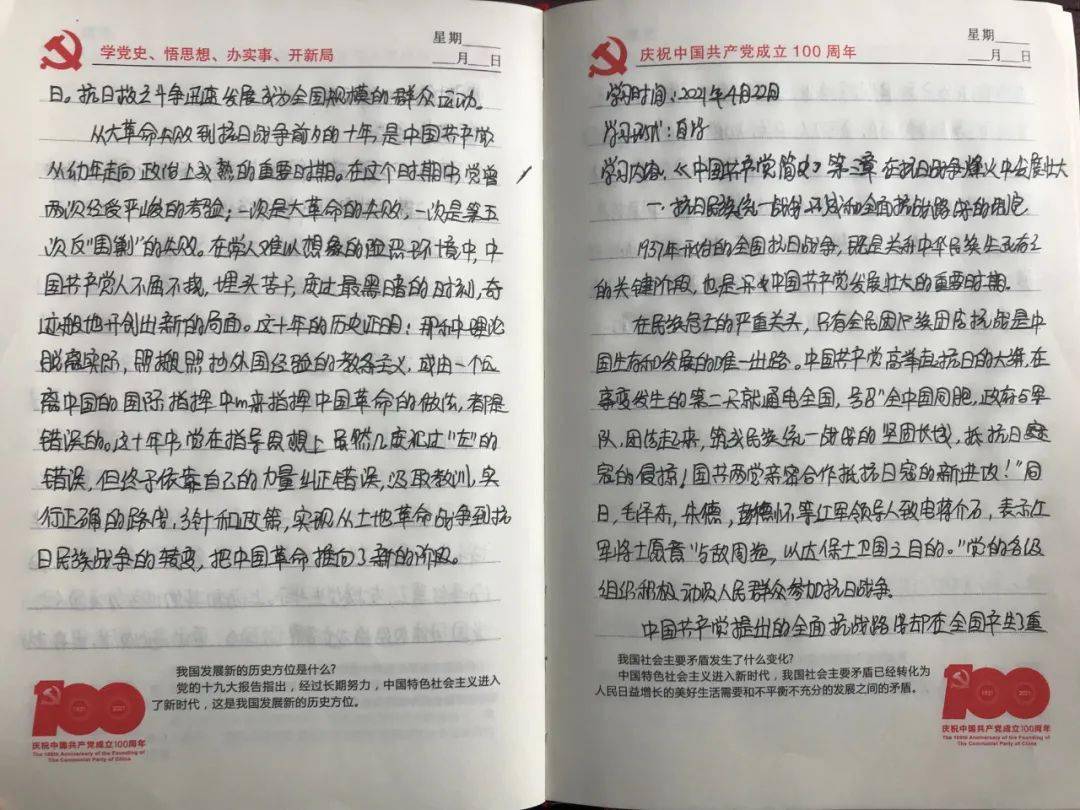 学党史、悟思想、办实事、开新局
星期
月 日
日。抗日救亡斗争迅速发展成为全国规模的群众运动。
从大革命失败到抗日战争前夕的十年,是中国共产党
从幼年走向政治上成熟的重要时期。在这个时期中,党曾
两次经受严峻的考验;一次是大革命的失败,一次是第五
次反“围剿”的失败。在常人难以想象的险恶环境中,中
国共产党人不屈不挠,埋头苦干,度过最黑暗的时刻,奇
迹般地开创出新的局面。这十年的历史证明:那种理论
脱离实际,照搬照抄外国经验的教条主义,或由一个远
离中国的国际指挥中心来指挥中国革命的做法,都是
错误的。这十年中,党在指导思想上虽然几度犯过“左”的
错误,但终于依靠自己的力量纠正错误,汲取教训,实
行正确的路线,方针和政策,实现从土地革命战争到抗
日民族战争的转变,把中国革命推向了新的阶段。
我国发展新的历史方位是什么?
党的十九大报告指出,经过长期努力,中国特色社会主义进入
了新时代,这是我国发展新的历史方位。
100
1921 2021
庆祝中国共产党成立100周年
The 100th Anniversary of the Founding of
The Communist Party of China
庆祝中国共产党成立100周年
星期
月 日
学习时间:2021年4月22日
学习形式:自学
学习内容:《中国共产党简史》第三章 在抗日战争烽火中发展壮大
一、抗日民族统一战线形成和全面抗战路线的制定
1937年开始的全国抗日战争,既是关系中华民族生死存亡
的关键阶段,也是中国共产党发展壮大的重要时期。
在民族危亡的严重关头,只有全民团结抗战是中
国生存和发展的唯一出路。中国共产党高举起抗日的大旗,在
事变发生的第二天就通电全国,号召“全中国同胞,政府与军
队,团结起来,筑成民族统一战线的坚固长城,抵抗日
寇的侵掠!国共两党亲密合作抵抗日寇的新进攻!”同
日,毛泽东,朱德,彭德怀等红军领导人致电蒋介石,表示红
军将士愿意“与敌周旋,以达保土卫国之目的。”党的各级
组织积极动员人民群众参加抗日战争。
中国共产党提出的全面抗战路线却在全国产生了重
我国社会主要矛盾发生了什么变化?
中国特色社会主义进入新时代,我国社会主要矛盾已经转化为
人民日益增长的美好生活需要和不平衡不充分的发展之间的矛盾。
100
1921 2021
庆祝中国共产党成立100周年
The 100th Anniversary of the Founding of
The Communist Party of China